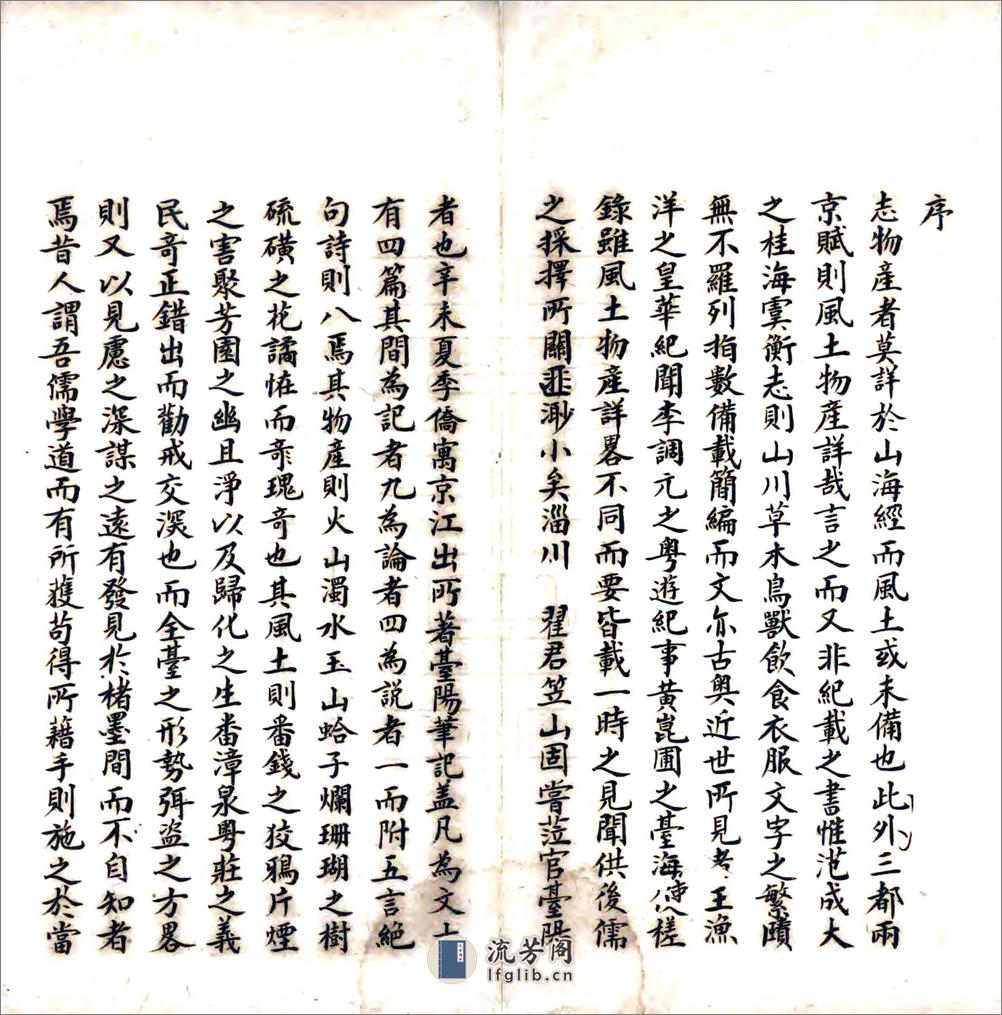 序
志物產者莫詳於山海經而風土或未備也此外三都兩
京賦則風土物產詳哉言之而又非紀載之書惟范成大
之桂海虞衡志則山川草木鳥獸飲食衣服文字之繁賾
無不羅列指數備載簡編而文亦古奧近世所見考王漁
洋之皇華紀聞李調元之粵遊紀事黃崑圃之臺海使槎
錄雖風土物產詳畧不同而要皆載一時之見聞供後儒
之採擇所關匪渺小矣淄川 翟君笠山固嘗蒞官臺陽
者也辛未夏季僑寓京江出所著臺陽筆記盖凡為文十
有四篇其間為記者九為論者四為説者一而附五言絕
句詩則八焉其物產則火山濁水玉山蛤子爛珊瑚之樹
硫磺之花譎恠而竒瑰竒也其風土則番錢之狡鴉片煙
之害聚芳園之幽且淨以及歸化之生番漳泉粵莊之義
民竒正錯出而勸戒交深也而全臺之形勢弭盜之方畧
則又以見慮之深謀之遠有發見於楮墨間而不自知者
焉昔人謂吾儒學道而有所獲苟得所藉手則施之於當
流芳阁
lfglib.cn